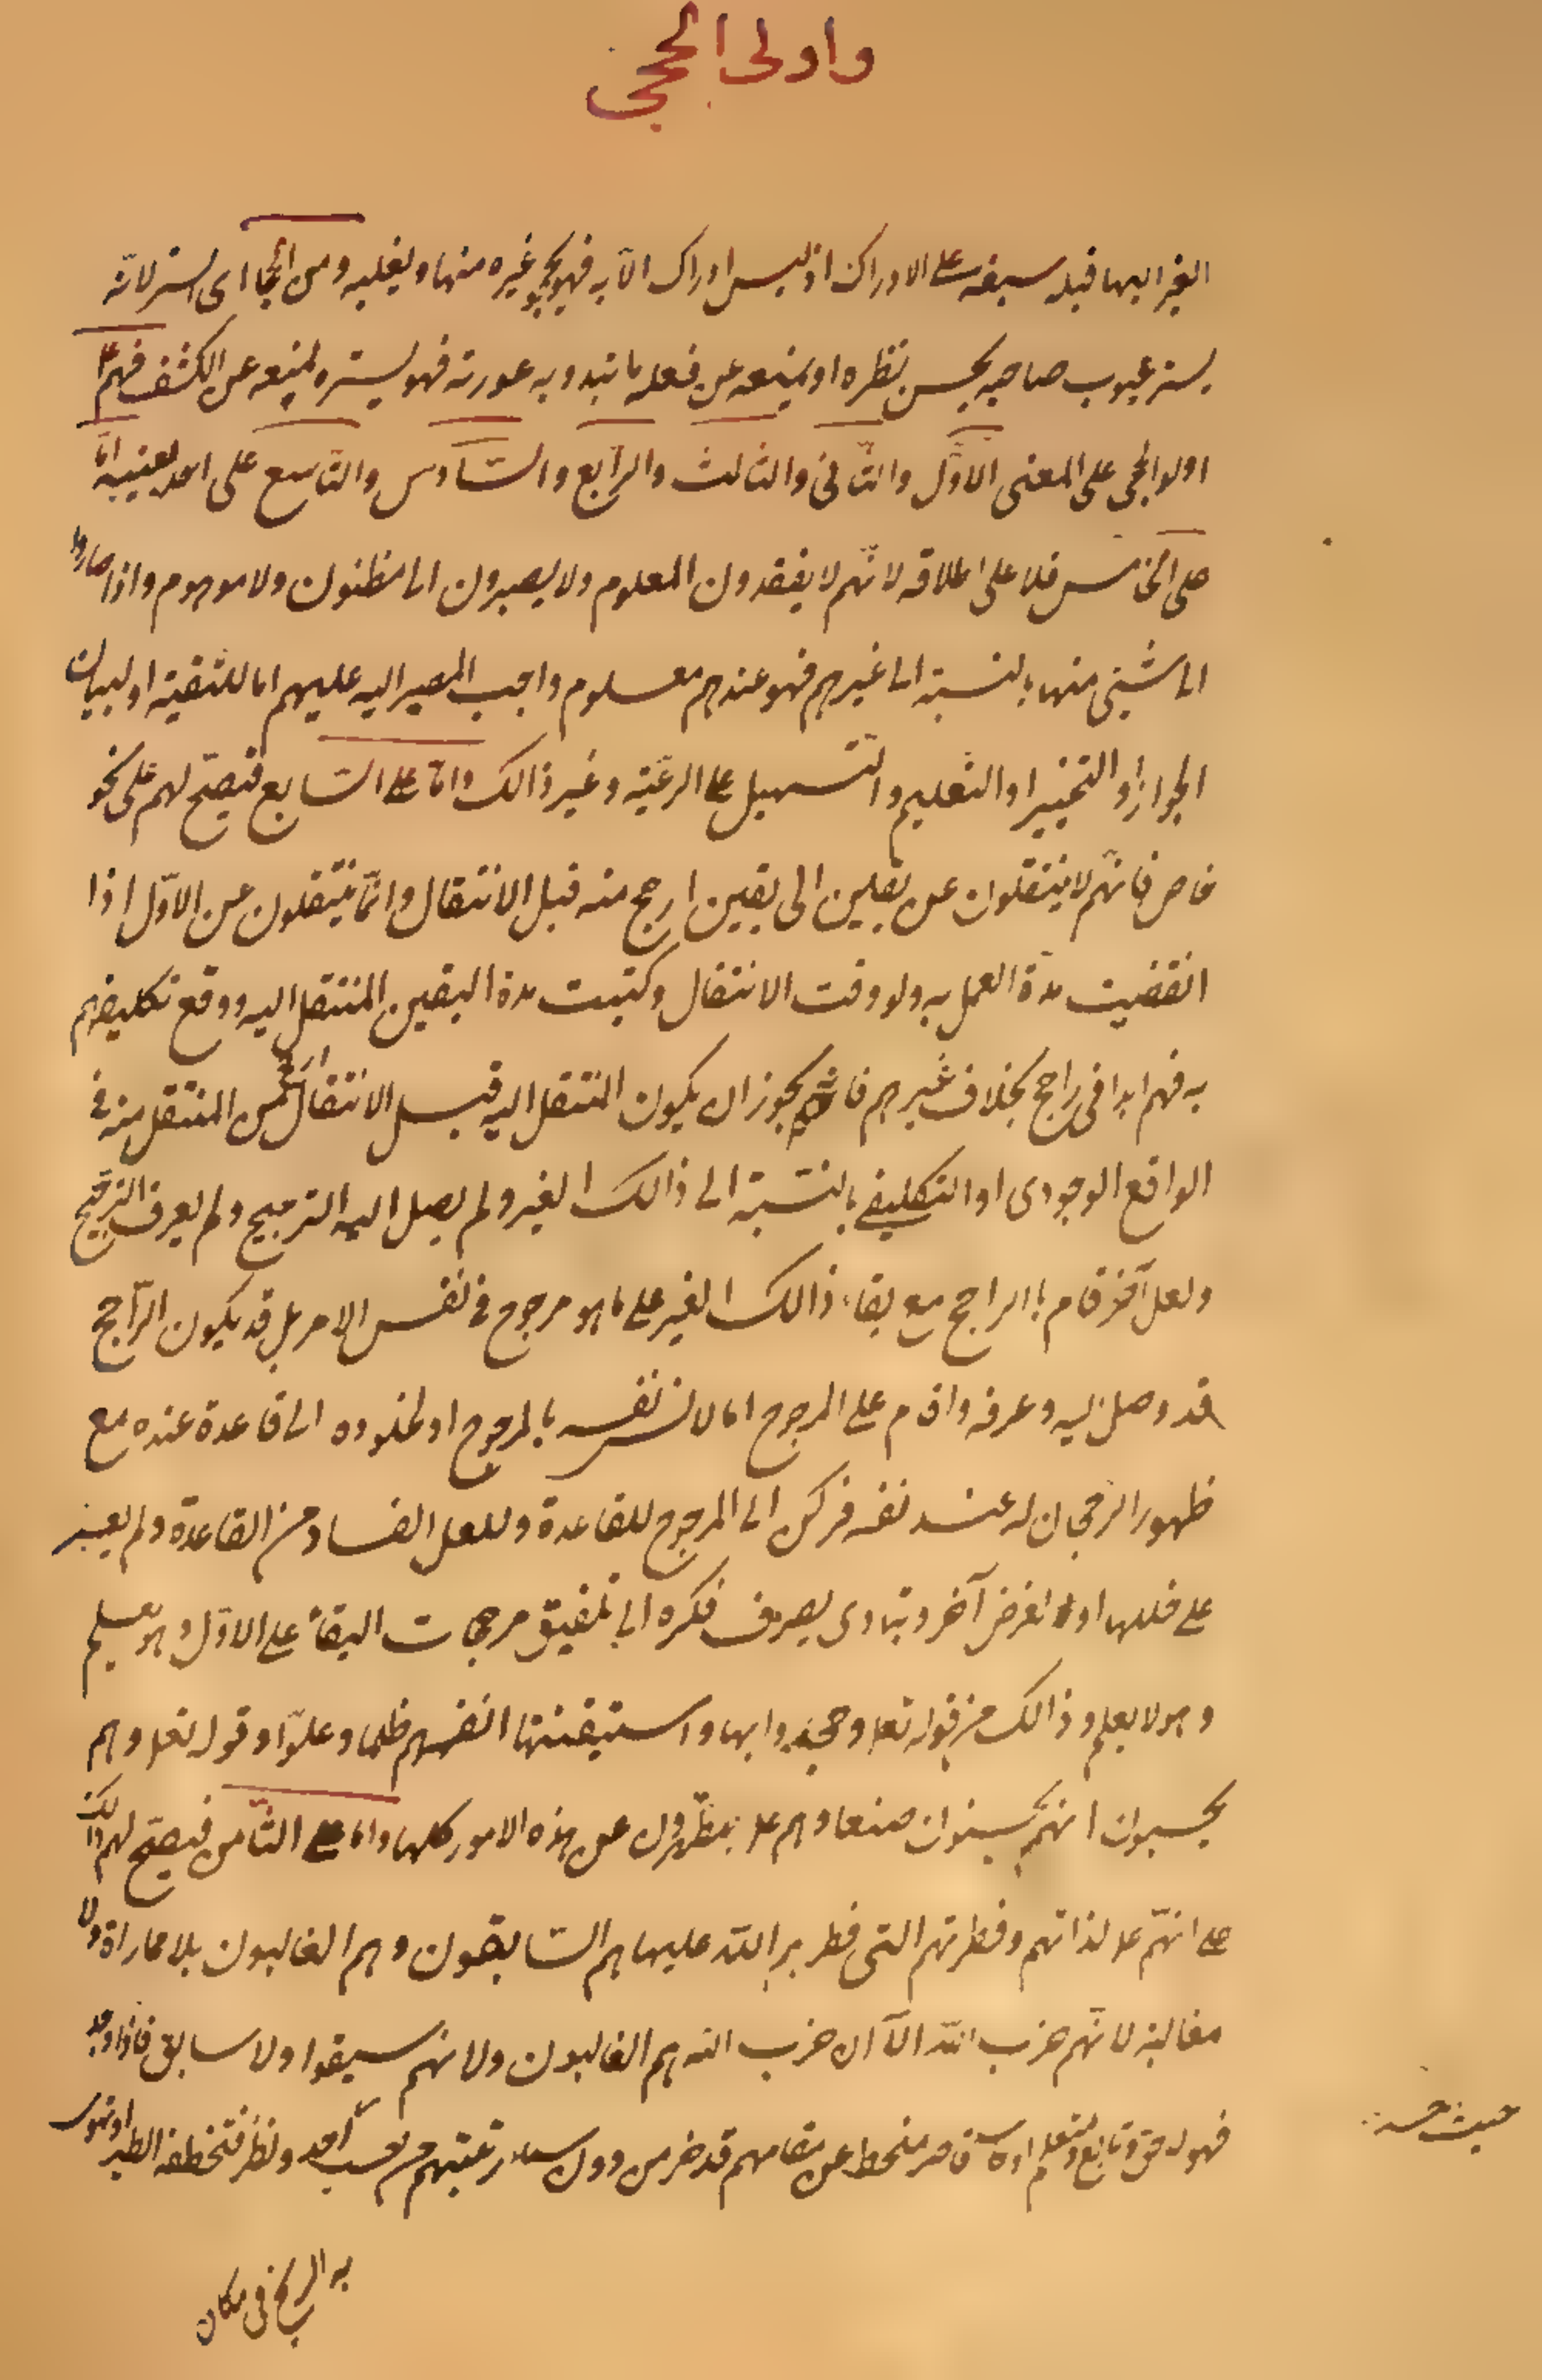 واولى الحجى
الغير اليها قبله سبقه على الادراك اذ ليس ادراك الا به فهو يحجو غيره منها ويغلبه ومن الحجا اى الستر لانه
يستر عيوب صاحبه بحسن نظره او يمنعه عن فعله ما تبدو به عورته فهو يستره لمنعه عن الكشف فهم ع
اولوا الحجى على المعنى الاوّل والثّانى والثالث والرّابع والسّادس والتّاسع على احد بعينيه امّا
على الخامس فلا على اطلاقه لانّهم لا يفقدون المعلوم ولا يصيرون الى مظنون ولا موهوم واذا صاروا
الى شيئ منها بالنسبة الى غيرهم فهو عندهم معلوم واجب المصير اليه عليهم اما للتّقيّة او لبيان
الجواز او التخيير او التعليم والتّسهيل على الرعيّة وغير ذالك وامّا على السّابع فيصحّ لهم على نحو
خاص فانّهم لا ينتقلون عن يقين الى يقين ارجح منه قبل الانتقال وانّما ينتقلون عن الاوّل اذا
انقضيت مدّة العمل به ولو وقت الانتقال وكتبت مدة اليقين المنتقل اليه ووقع تكليفهم
به فهم ابدا فى راجح بخلاف غيرهم فانه يجوز ان يكون المنتقل اليه قبل الانتقال ارجح من المنتقل منه فى
الواقع الوجودى او التكليفى بالنّسبة الى ذالك الغير ولم يصل اليه الترجيح ولم يعرف الترجيح
ولعل آخر قام بالراجح مع بقاء ذالك الغير على ما هو مرجوح فى نفس الامر بل قد يكون الرّاجح
قد وصل اليه وعرفه واقام على المرجوح اما لانس نفسه بالمرجوح او لخلوده الى قاعدة عنده مع
ظهور الرجحان له عند نفسه فركن الى المرجوح للقاعدة وللعل الفساد من القاعدة ولم يعثر
على خللها او لغرض آخر وتمادى يصرف فكره الى تلفيق مرجحات البقاء على الاوّل وهو يعلم
وهو لا يعلم وذالك من قوله تعلى وجحدوا بها واستيقنتها انفسهم ظلما وعلوّا وقوله تعلى وهم
يحسبون انهم يحسنون صنعا وهم ع مطهّرون عن هذه الامور كلها واما على الثّامن فيصحّ لهم ذالك
على انهّم ع لذاتهم وفطرتهم التى فطرهم اللّه عليها هم السّابقون وهم الغالبون بلا مماراة ولا
مغالبة لانّهم حزب اللّه الاّ ان حزب الله هم الغالبون ولانهم سبقوا ولا سابق فاذا وجد
فهو لاحق وتابع ومتعلم او قاصر منحط عن مقامهم قد خر من دون رتبتهم فتخطفه الطير او تهوى
حيث
به الريح فى مكان